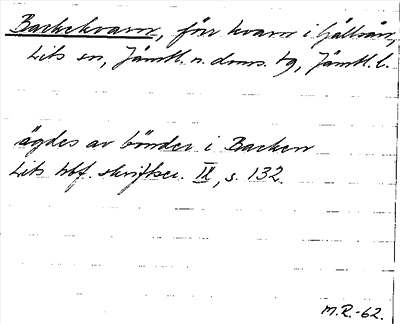 Backekvarn, förr kvarn i Gällsån,
Lits sn, Jämtl. n. doms. tg, Jämtl. l.
ägdes av bönder i Backen
Lits hbf. skriftser. IX, s. 132.
M.R.-62.